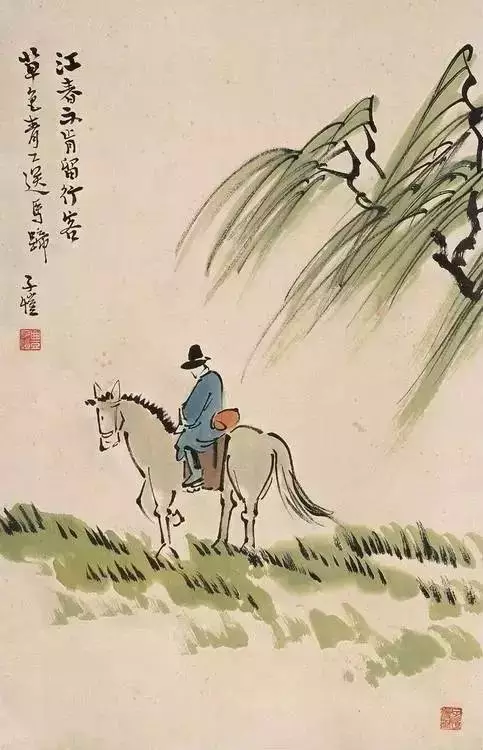 江春不肯留行客
草色青々送馬蹄
子愷